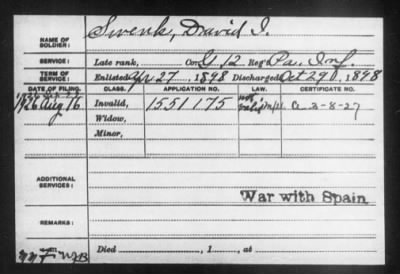 NAME OF SOLDIER: Swenk, David I.
SERVICE: Late rank, Co. G 12 Reg't Pa. Inf.
TERM OF SERVICE: Enlisted Apr 27, 1898 Discharged Oct 29, 1898
DATE OF FILING. CLASS. APPLICATION NO. LAW. CERTIFICATE NO.
1926 Aug 16 Invalid, 1551175 not C 3-8-27
Widow,
Minor,
ADDITIONAL SERVICES:
War with Spain
REMARKS:
WJB Died , 1 , at